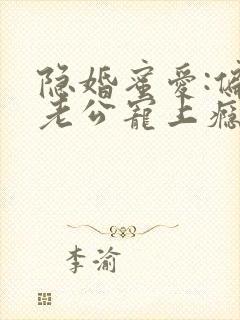 隐婚蜜爱:偏
老公宠上瘾
李渝